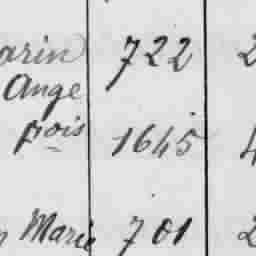 arin 722 2
Ange
pois 1645 4
Marie 701 2